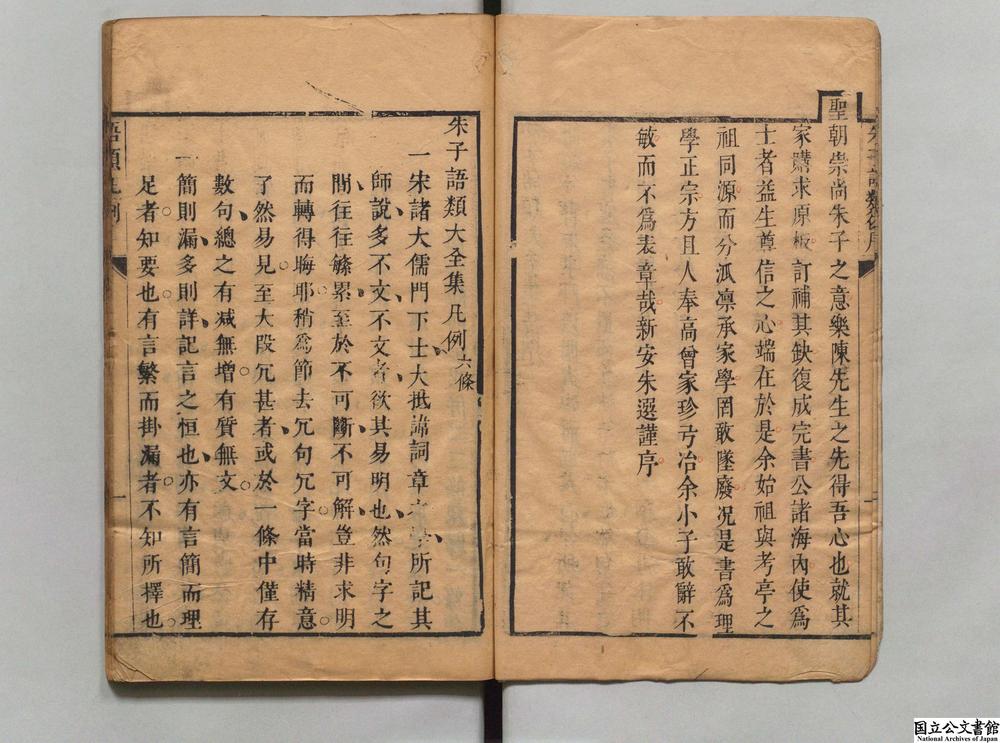 聖朝崇尚朱子之意樂陳先生之先得吾心也就其
家購求原板訂補其缺復成完書公諸海內使爲
士者益生尊信之心端在於是余始祖與考亭之
祖同源而分派凛承家學罔敢墜廢况是書爲理
學正宗方且人奉高曾家珍弓冶余小子敢辭不
敏而不爲表章哉新安朱選謹序
朱子語類大全集凡例六條
一宋諸大儒門下士大抵諱詞章之學所記其
師說多不文不文者欲其易明也然句字之
間往往絛累至於不可斷不可解豈非求明
而轉得晦耶稍爲節去冗句冗字當時精意
了然易見至大段冗甚者或於一條中僅存
數句總之有减無增有質無文
一簡則漏多則詳記言之恒也亦有言簡而理
足者知要也有言繁而掛漏者不知所擇也
語類凡例
一
国立公文書館
National Archives of Japan